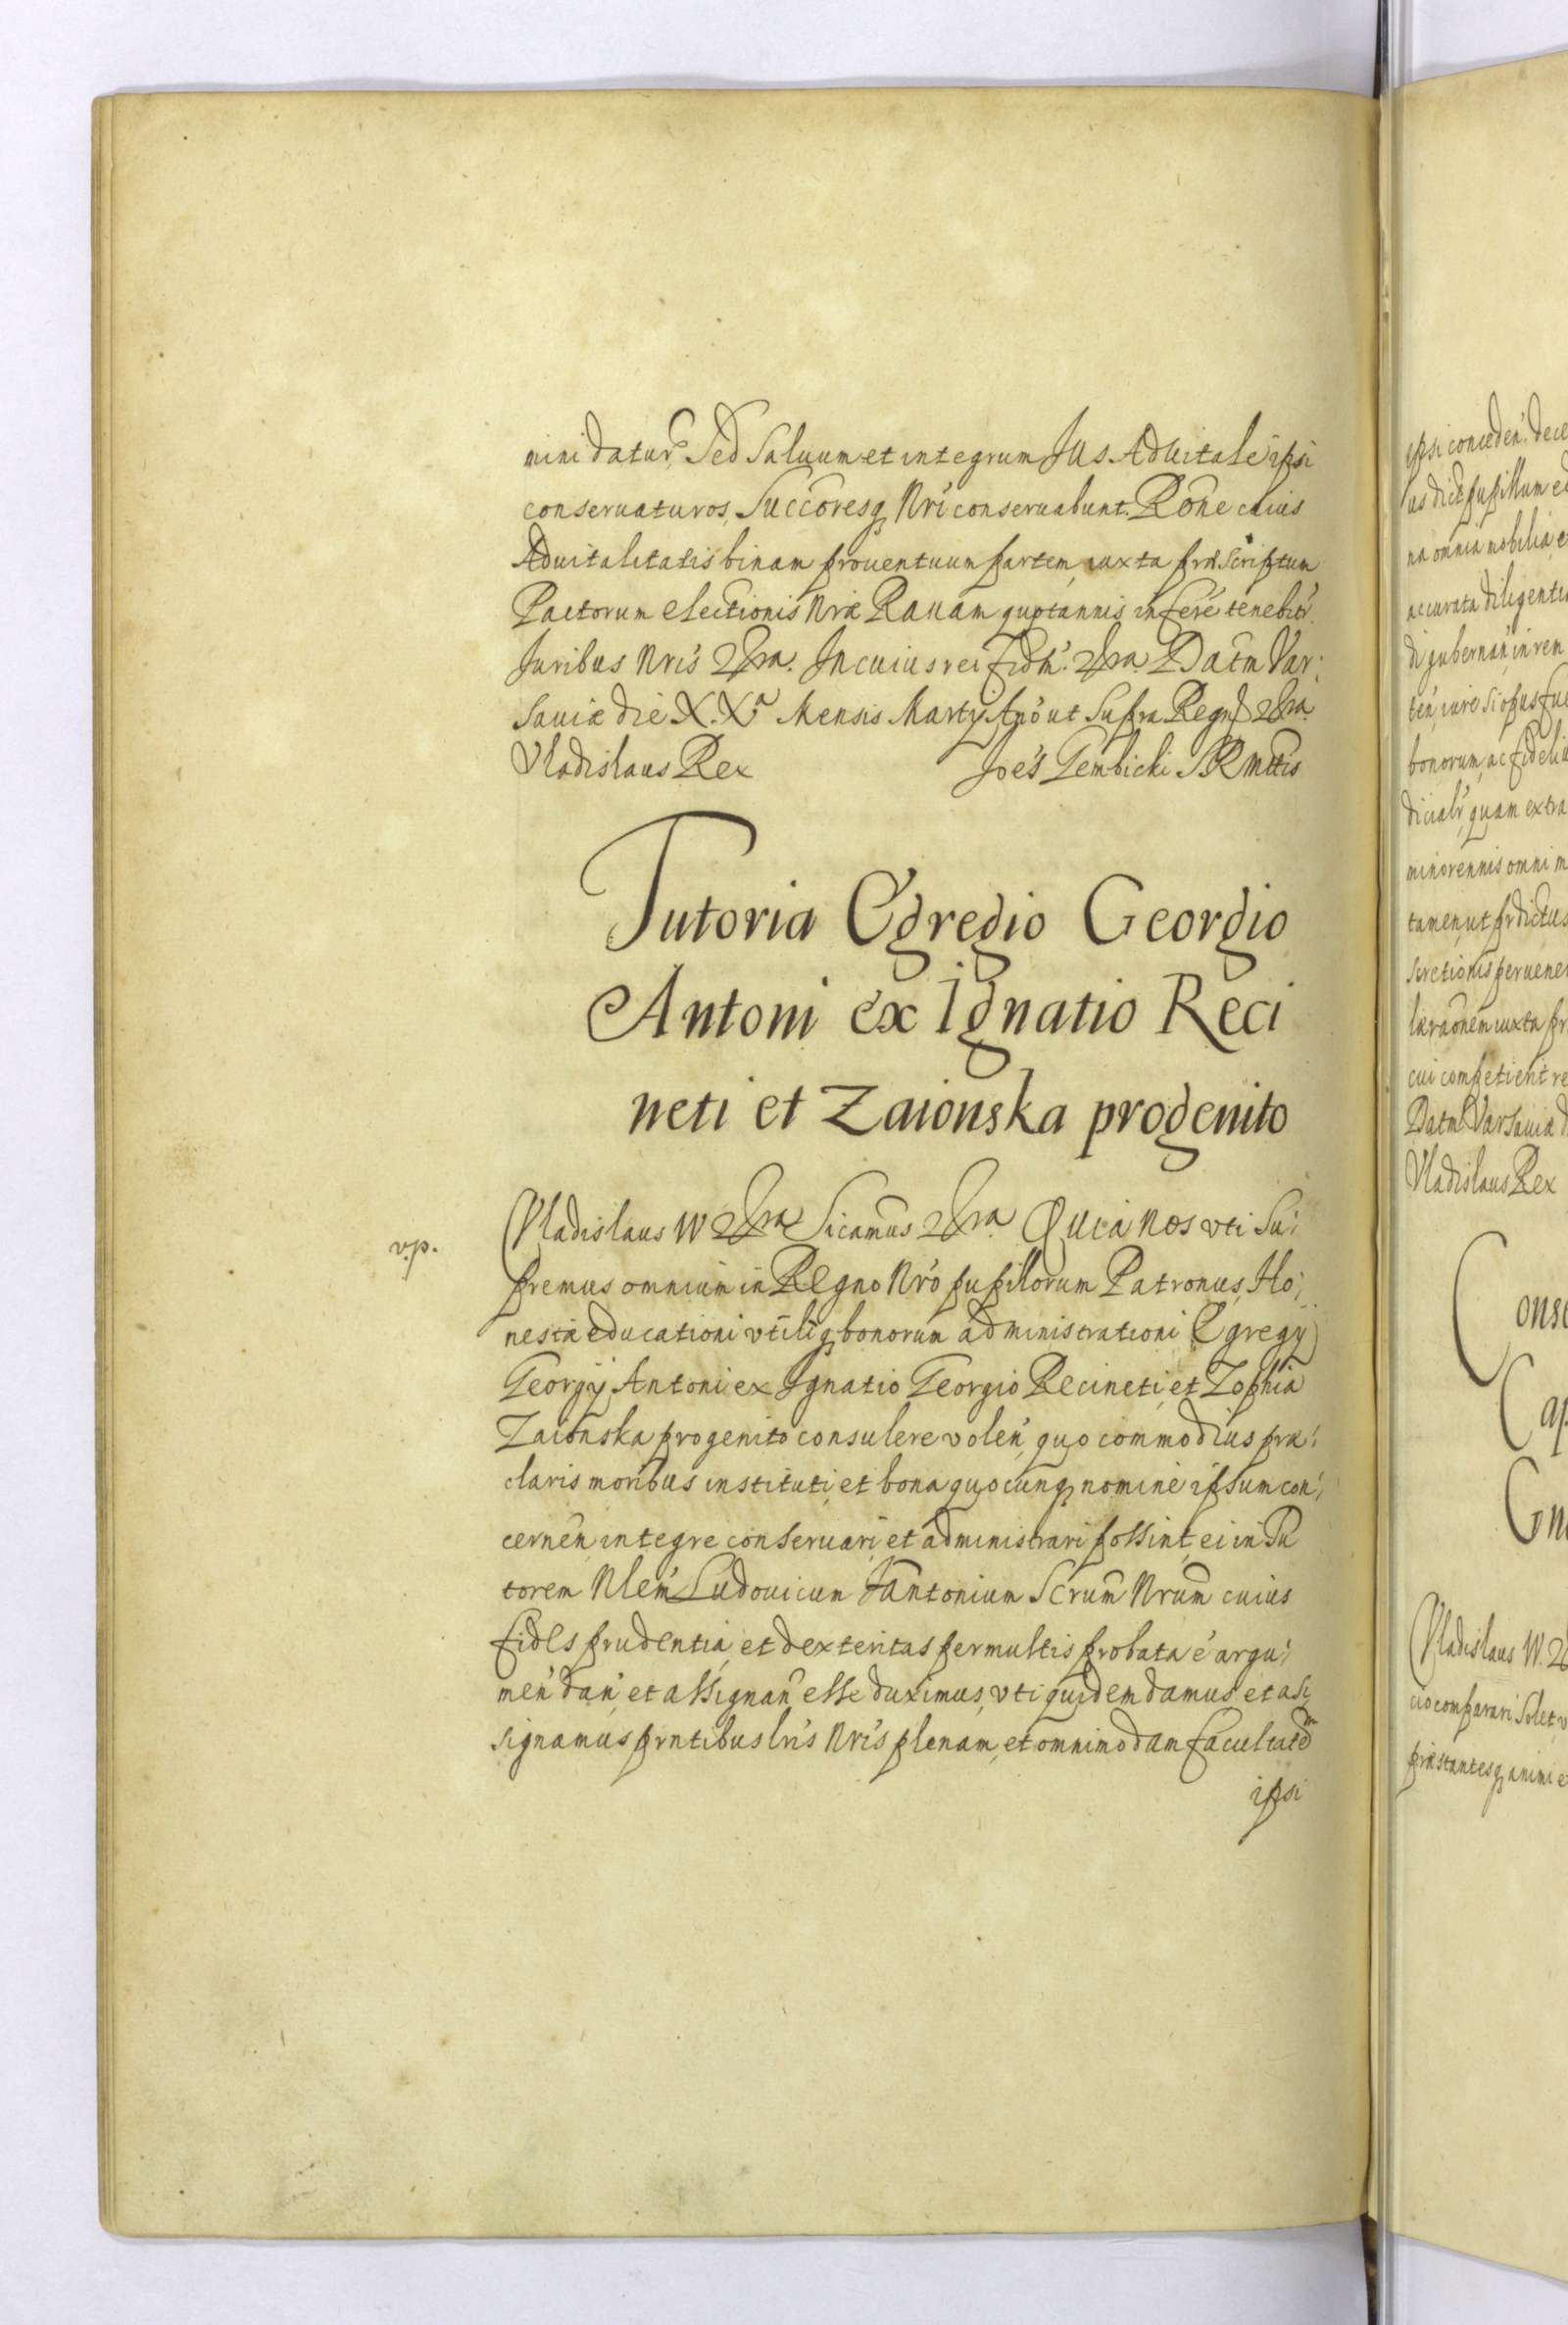 mini datur, Sed Saluum et integrum Jus Aduitale ipsi
conseruaturos, Succōresq Nrī conseruabunt. Rōne cuius
Aduitalitatis binam prouentuum partem, iuxta prǣscriptum
Pactorum electionis Nrǣ Rauam quotannis inferē tenebitr.
Juribus Nrīs &ra. In cuius rei fidm̄. &ra. Datm̄ Var:
sauiæ die X.Xa Mensis Martij Anō ut supra Regnj &ra.
Vladislaus Rex Joēs Gembicki SRMttis
Tutoria Egregio Georgio
Antoni ex Ignatio Reci
neti et Zaionska progenito
v.p.
Vladislaus IV &ra Sicamūs &ra. Quia nos vti Su:
premus omnium in Regno Nrō pupillorum Patronus, Ho:
nestæ educationi vtiliq bonorum administrationi Egregij
Georgij Antoni ex Ignatio Georgio Recineti, et Zophia
Zaionska progenito consulere volen̄, quo commodius præ:
claris moribus instituti, et bona quocunq nomine ipsum con:
cernen̄, integre conseruari, et administrari possint, ei in Tu
torem Nlem̄ Ludouicum Fantonium Scrum̄ Nrum̄ cuius
fides prudentia, et dexteritas permultis probata ē argu:
men̄ dan̄, et assignan̄ esse duximus, vti quidem damus et as:
signamus prntibus lrīs Nrīs plenam, et omnimodam facultatēm
ipsi
ipsi conceden̄. dece
na omnia mobilia, e
accurata diligenti
di gubernan̄, in rem
ten̄, iure si opus fue
bonorum, ac fideli
diciałr, quam extra
minorennis omni m
tamen, ut prdictus
scretionis peruene
læraōnem iuxta pr
cui competient re
Datm̄ Varsauiæ d
Vladislaus Rex
Cons
Cap
Gn
Vladislaus IV. &
cio comparari solet, v
præstantesq animi e